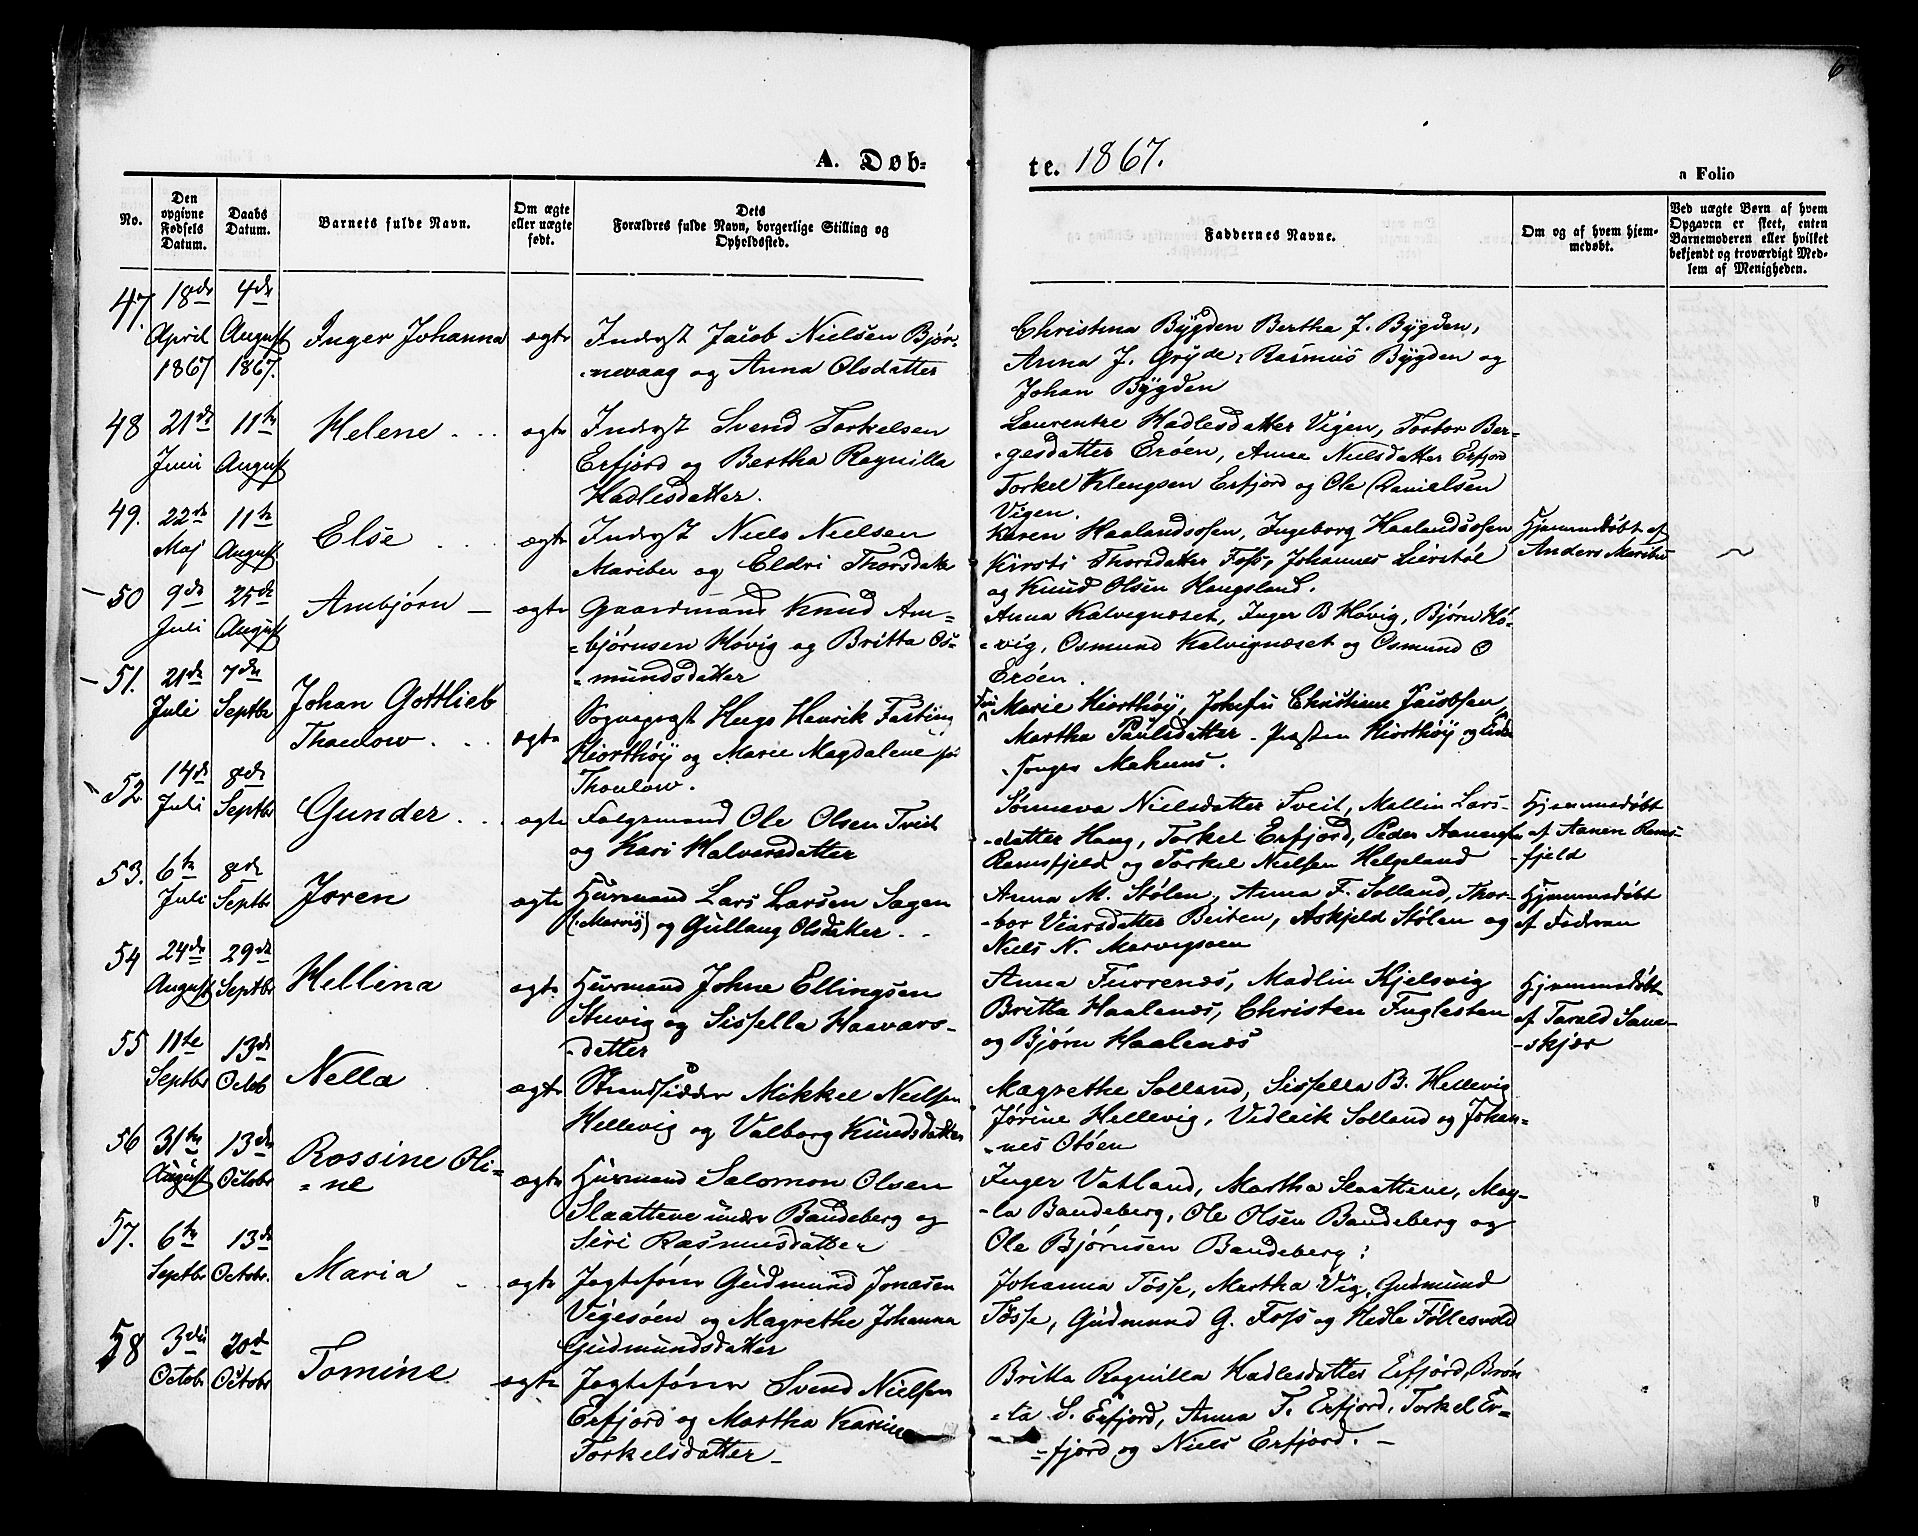 6
A. Døb-
te. 1867.
a Folio
No.
Den opgivne Fødsels Datum.
Daabs Datum.
Barnets fulde Navn.
Om ægte eller uægte født.
Dets
Forældres fulde Navn, borgerlige Stilling og
Opholdssted.
Faddernes Navne.
Om og af hvem hjem-
medøbt.
Ved uægte Børn af hvem
Opgaven er skeet, enten
Barnemoderen eller hvilket
bekjendt og troværdigt Med-
lem af Menigheden.
47. 18de April 1867 4de August 1867. Inger Johanna ægte
Inderst Jacob Nielsen Bjør-
-nevaag og Anna Olsdatter
Christina Bygden Bertha J. Bygden,
Anna J. Gryde, Rasmus Bygden og
Johan Bygden
48 21de Juni 11te August Helene ægte
Inderst Svend Torkelsen
Erfjord og Bertha Ragnilla
Hadlesdatter.
Laurentse Hadlesdatter Vigen, Torbor Ber-
-gesdatter Erøen, Anna Nielsdatter Erfjord
Torkel Klengsen Erfjord og Ole Danielsen
Vigen.
49. 22de Maj 11te August Else ægte
Inderst Niels Nielsen
Mariber og Eldri Thorsdatter
Karen Haalandsosen, Ingeborg Haalandsosen
Kirsti Thorsdatter Foss, Johannes Lierstøl
og Knud Olsen Haugsland.
Hjemmedøbt af
Anders Maribu
50 9de Juli 25de August Ambjørn ægte
Gaardmand Knud Am-
-bjørnsen Høvig og Britta Os-
-mundsdatter
Anna Kalvignæset, Inger B Høvig, Bjørn Hø-
-vig, Osmund Kalvignæset og Osmund O
Erøen.
51. 21de Juli 7de Septbr Johan Gottlieb
Thaulow ægte
Sognepræst Hugo Henrik Fasting
Hiorthøy og Marie Magdalene
Thaulow.
Marie Hiorthøy, Josefa Christiane Jacobsen,
Martha Paulsdatter. Præsten Hiorthøy og
52. 14de Juli 8de Septbr Gunder ægte
Folgemand Ole Olsen Tveit
og Kari Halvorsdatter
Sønneva Nielsdatter Tveit, Mallin Lars-
-datter Haug, Torkel Erfjord, Peder Aanensen
Ramsfjeld og Torkel Nielsen Helgeland
Hjemmedøbt
af Aanen Rams-
-fjeld
53. 6te Juli 8de Septbr Joren ægte
Husmand Lars Larsen Sagen
(Marvig) og Gullaug Olsdatter
Anna M. Stølen, Anna F. Solland, Thor-
-bor Veiarsdatter Beiten, Askjeld Stølen og
Niels N. Marvigsøen
Hjemmedøbt
af Faderen
54 24de August 29de Septbr Hellina ægte
Husmand Johne Ellingsen
Stuvig og Sissella Haavars-
-datter
Anna Furrenæs, Madlin Kjelsvig
Britta Haalenæs, Christen Fuglesten
og Bjørn Haalenæs
Hjemmedøbt
af Tarald Sand-
-skjær
55 11te Septbr 13de Octob Nella ægte
Strandsidder Mikkel Nielsen
Hellevig og Valborg Knudsdatter
Magrethe Solland, Sissella B. Hellevig
Jørine Hellevig, Vidleik Solland og Johan-
-nes Otøen
56 31te August 13de Octobr Rossine Oli-
-ne ægte
Husmand Salomon Olsen
Slaattene under Bandeberg og
Siri Rasmusdatter
Inger Vatland, Martha Slaattene, Mag-
-la Bandeberg, Ole Olsen Bandeberg og
Ole Bjørnsen Bandeberg.
57. 6te Septbr 13de Octobr. Maria ægte
Jagtefører Gudmund Jonasen
Vigesøen og Magrethe Johanna
Gudmundsdatter
Johanna Tøsse, Martha Vig, Gudmund
Tøsse, Gudmund G. Foss og Hedle Føllesvold
58 3die Octobr 20de Octobr Tomine ægte
Jagtefører Svend Nielsen
Erfjord og Martha Karine
Torkelsdatter
Britta Ragnilla Hadlesdatter Erfjord, Brøn
-ta S. Erfjord, Anna T. Erfjord, Torkel Er-
-fjord og Niels Erfjord.